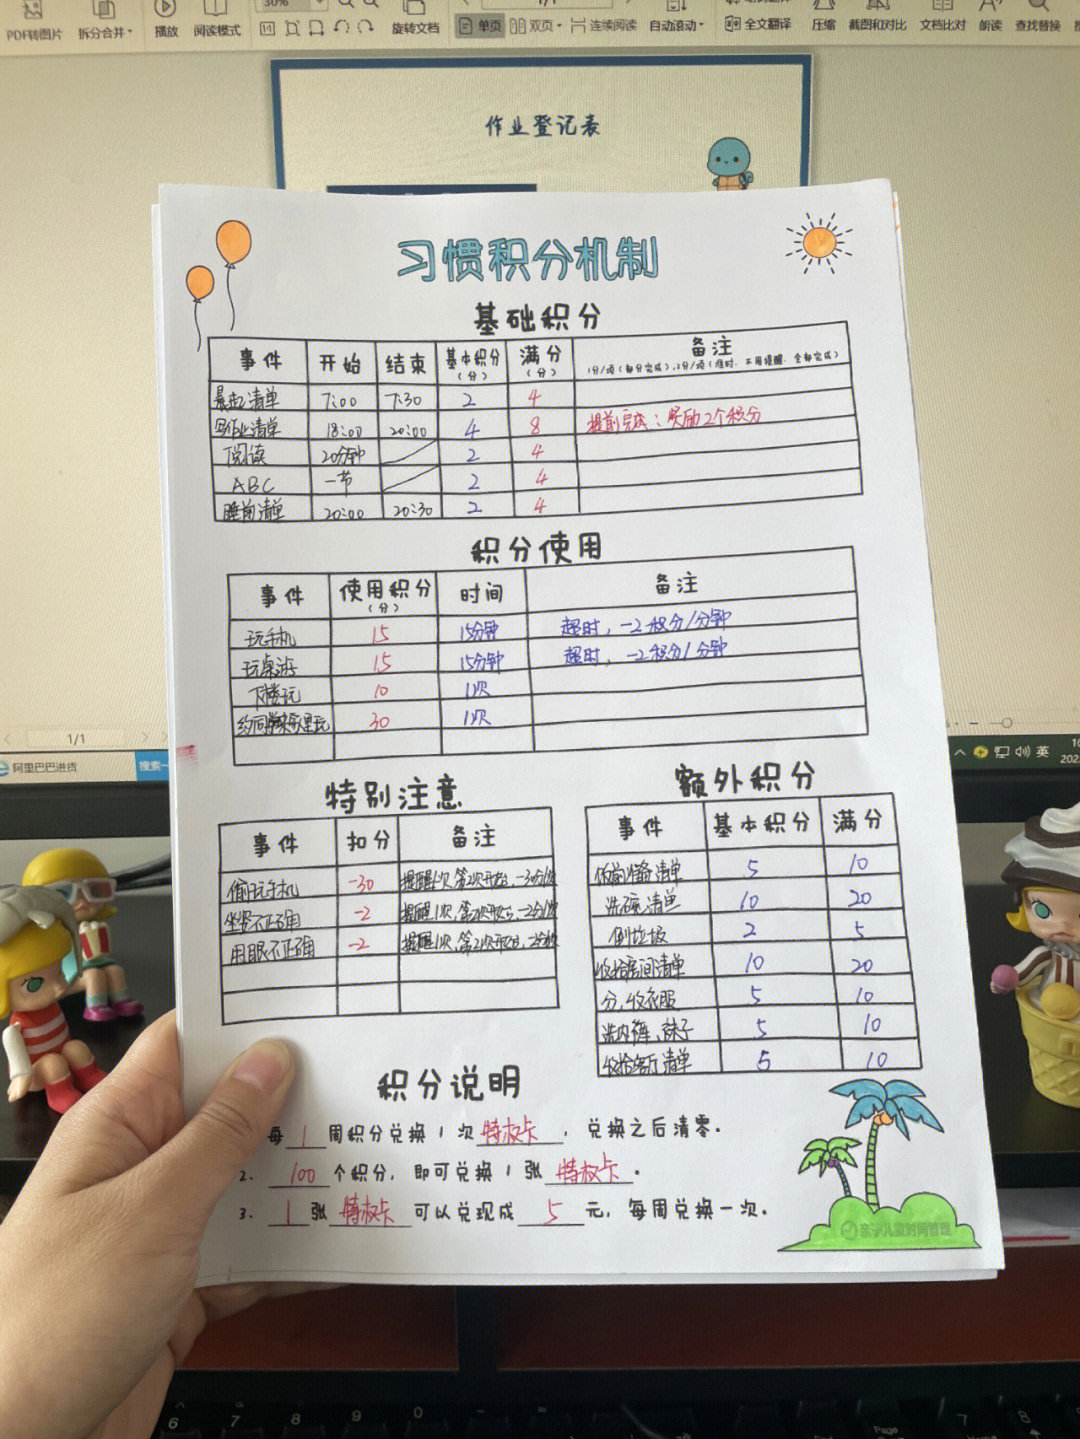 PDF转图片 拆分合并 播放 阅读模式 30% 旋转文档 单页 双页 连续阅读 自动滚动 全文翻译 压缩 截图和对比 文档比对 朗读 查找替换
作业登记表
习惯积分机制
基础积分
事件 开始 结束 基本积分(分) 满分(分) 备注
1分/项(部分完成),2分/项(准时、不用提醒、全部完成)
晨起清单 7:00 7:30 2 4
写作业清单 18:00 20:00 4 8 提前完成:奖励2个积分
阅读 20分钟 2 4
ABC 一节 2 4
睡前清单 20:00 20:30 2 4
积分使用
事件 使用积分(分) 时间 备注
玩手机 15 15分钟 超时,-2积分/分钟
玩桌游 15 15分钟 超时,-2积分/分钟
下楼玩 10 1次
约同学来家里玩 30 1次
特别注意
事件 扣分 备注
偷玩手机 -30 提醒1次,第2次开始,-30分/次
坐姿不正确 -2 提醒1次,第2次开始,-2分/次
用眼不正确 -2 提醒1次,第2次开始,-2分/次
额外积分
事件 基本积分 满分
饭前准备清单 5 10
洗碗清单 10 20
倒垃圾 2 5
收拾房间清单 10 20
分,收衣服 5 10
洗内裤、袜子 5 10
收拾客厅清单 5 10
积分说明
每 1 周积分兑换1次 特权卡 ,兑换之后清零。
2. 100 个积分,即可兑换1张 特权卡 。
3. 1 张 特权卡 可以兑现成 5 元,每周兑换一次。
亲子儿童时间管理
1/1
阿里巴巴进货 搜索一
英
6 7 8 9 0 7 8